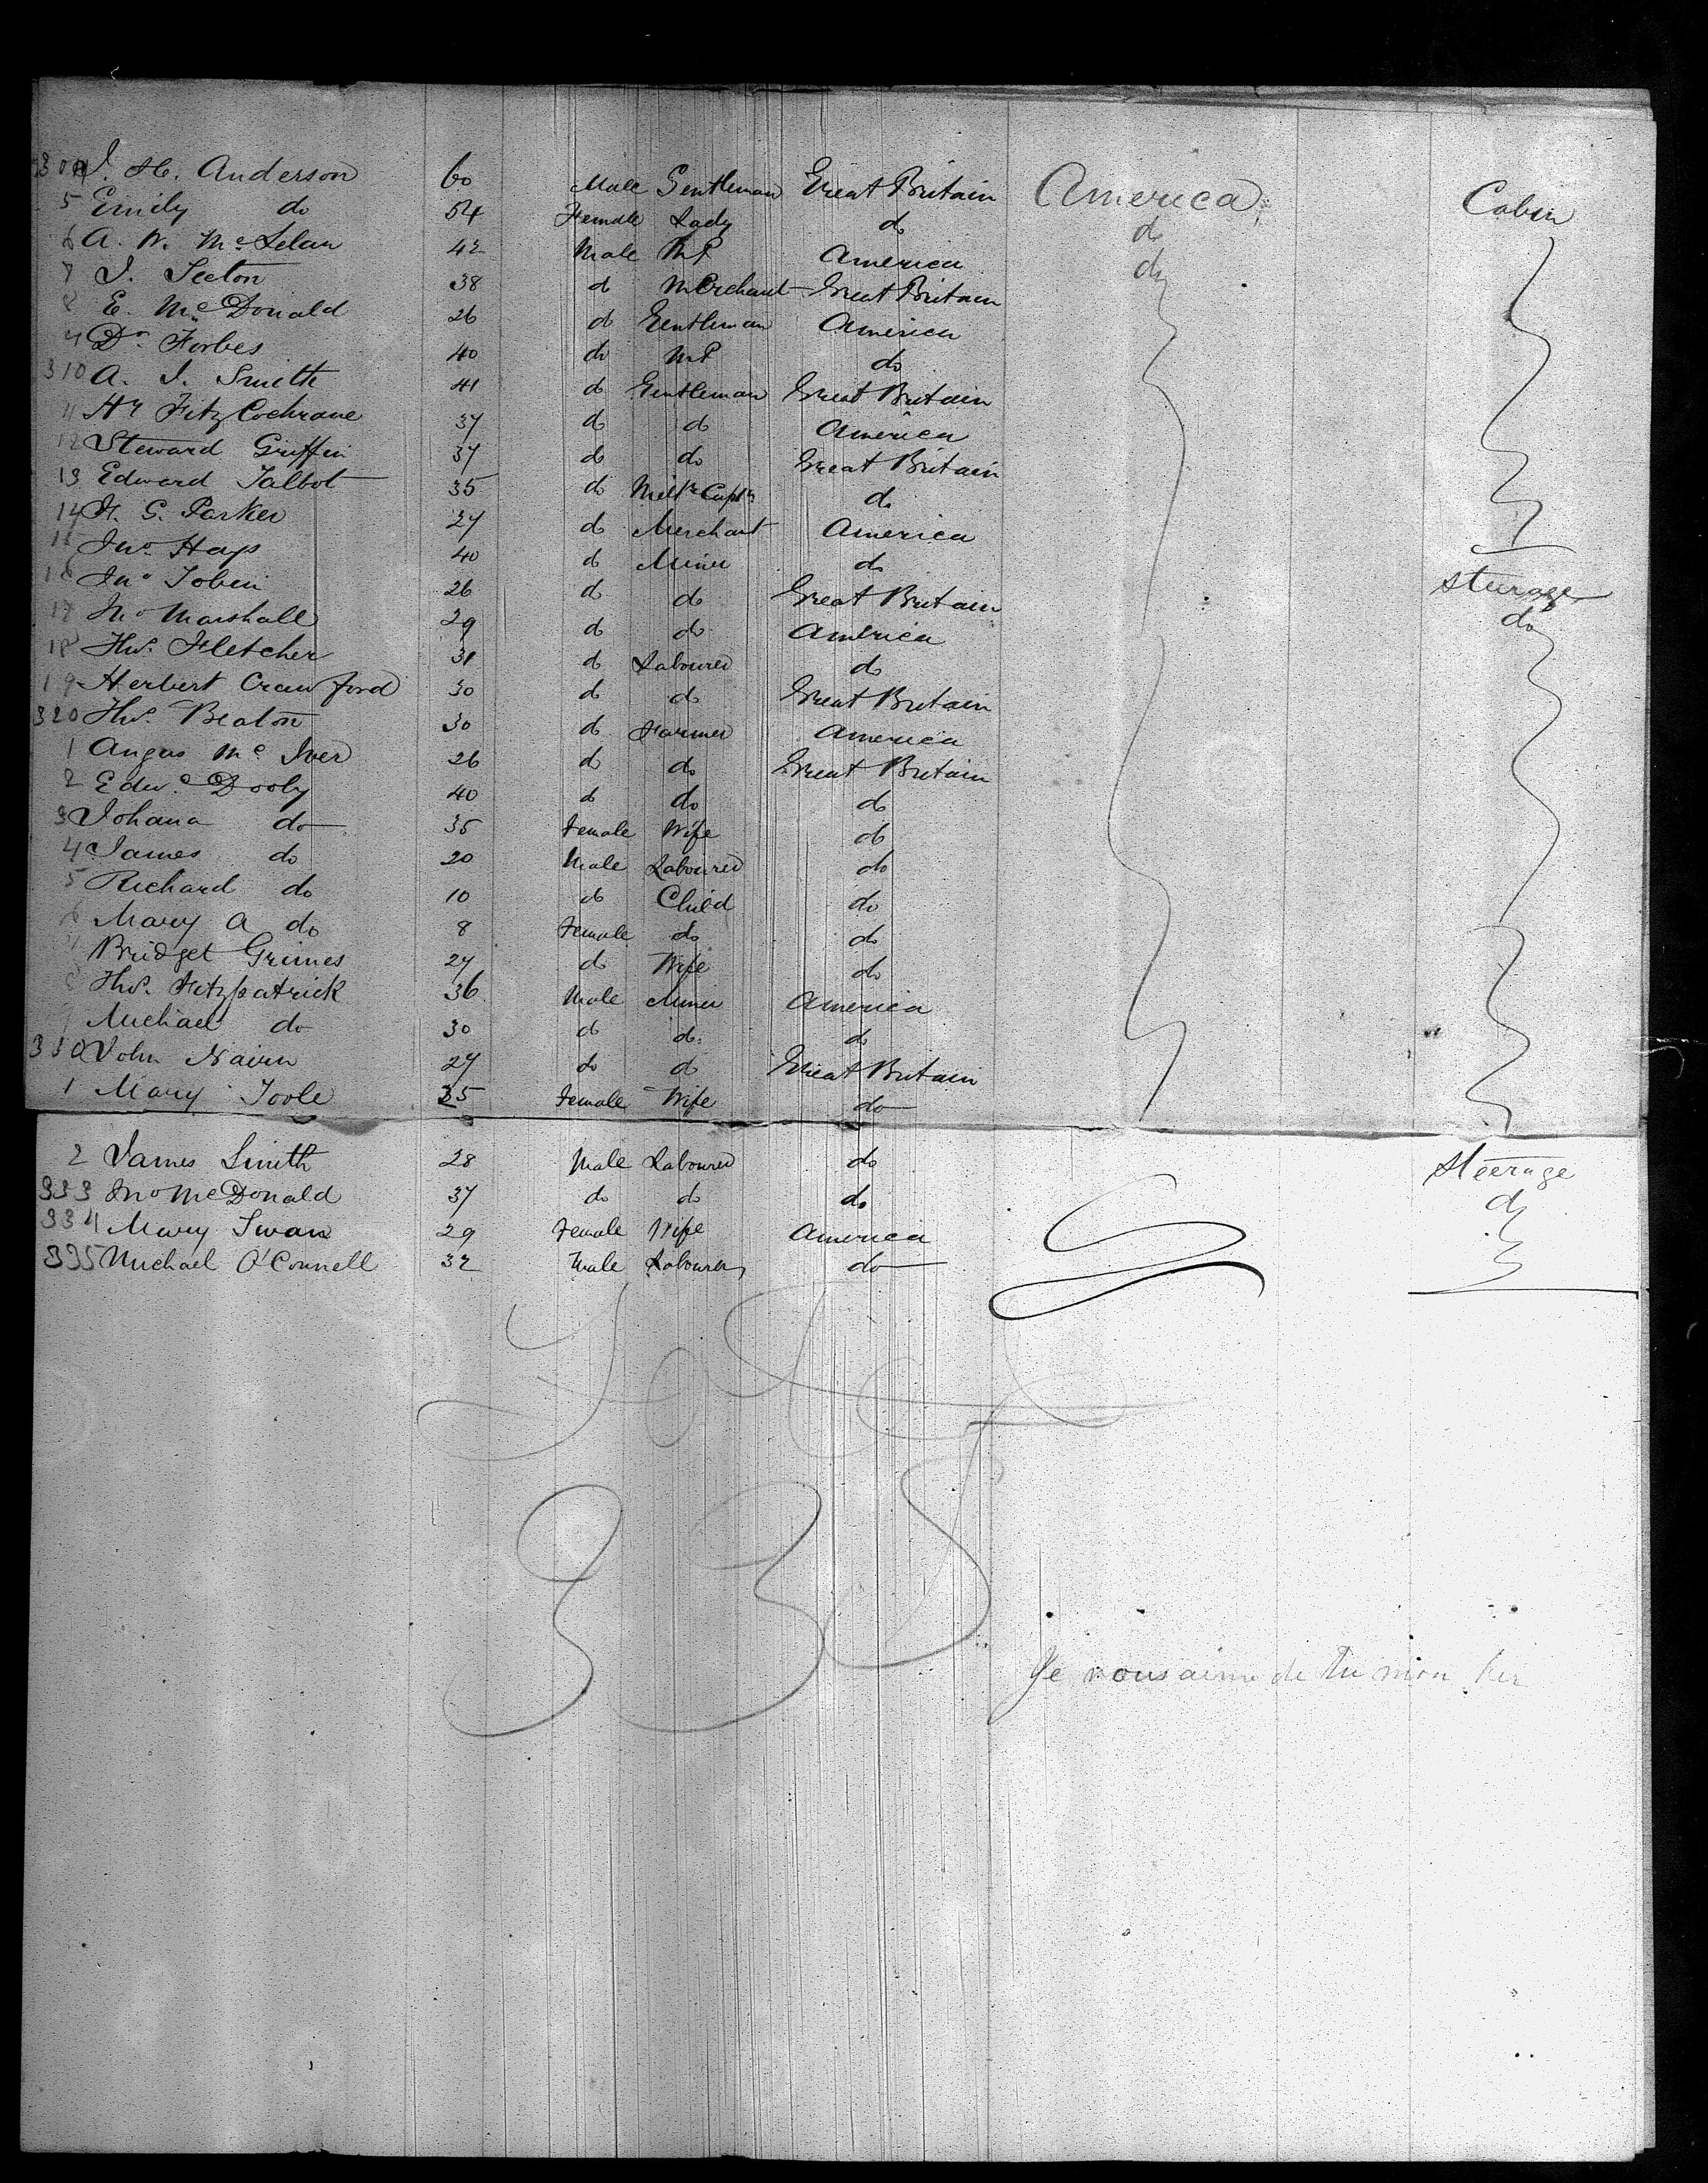 304 J. H. Anderson 60 Male Gentleman Great Britain America Cabin
5 Emily do 54 Female Lady do do
6 A. W. McLelan 42 Male MP America do
7 J. Seeton 38 do Merchant Great Britain
8 E. McDonald 26 do Gentleman America
9 Dr. Forbes 40 do MP do
310 A. J. Smith 41 do Gentleman Great Britain
11 Hy FitzCochrane 37 do do America
12 Steward Griffin 37 do do Great Britain
13 Edward Talbot 35 do Milty Captn do
14 H. G. Parker 27 do Merchant America
15 Jno. Hays 40 do Miner do
16 Jno Tobin 26 do do Great Britain Sturage
17 Jno Marshall 29 do do America do
18 Thos. Fletcher 31 do Labourer do
19 Herbert Crawford 30 do do Great Britain
320 Thos. Beaton 30 do Farmer America
1 Angus McIver 26 do do Great Britain
2 Edwd. Dooly 40 do do do
3 Johana do 35 Female Wife do
4 James do 20 Male Labourer do
5 Richard do 10 do Child do
6 Mary A do 8 Female do do
7 Bridget Grimes 27 do Wife do
8 Thos. Fitzpatrick 36 Male Miner America
9 Michael do 30 do do. do
330 John Nairn 27 do do Great Britain
1 Mary Toole 35 Female Wife do
2 James Smith 28 Male Labourer do Steerage
333 Jno McDonald 37 do do do do
334 Mary Swan 29 Female Wife America
335 Michael O'Connell 32 Male Labourer do
Total
335
Je vous aime de tu mon